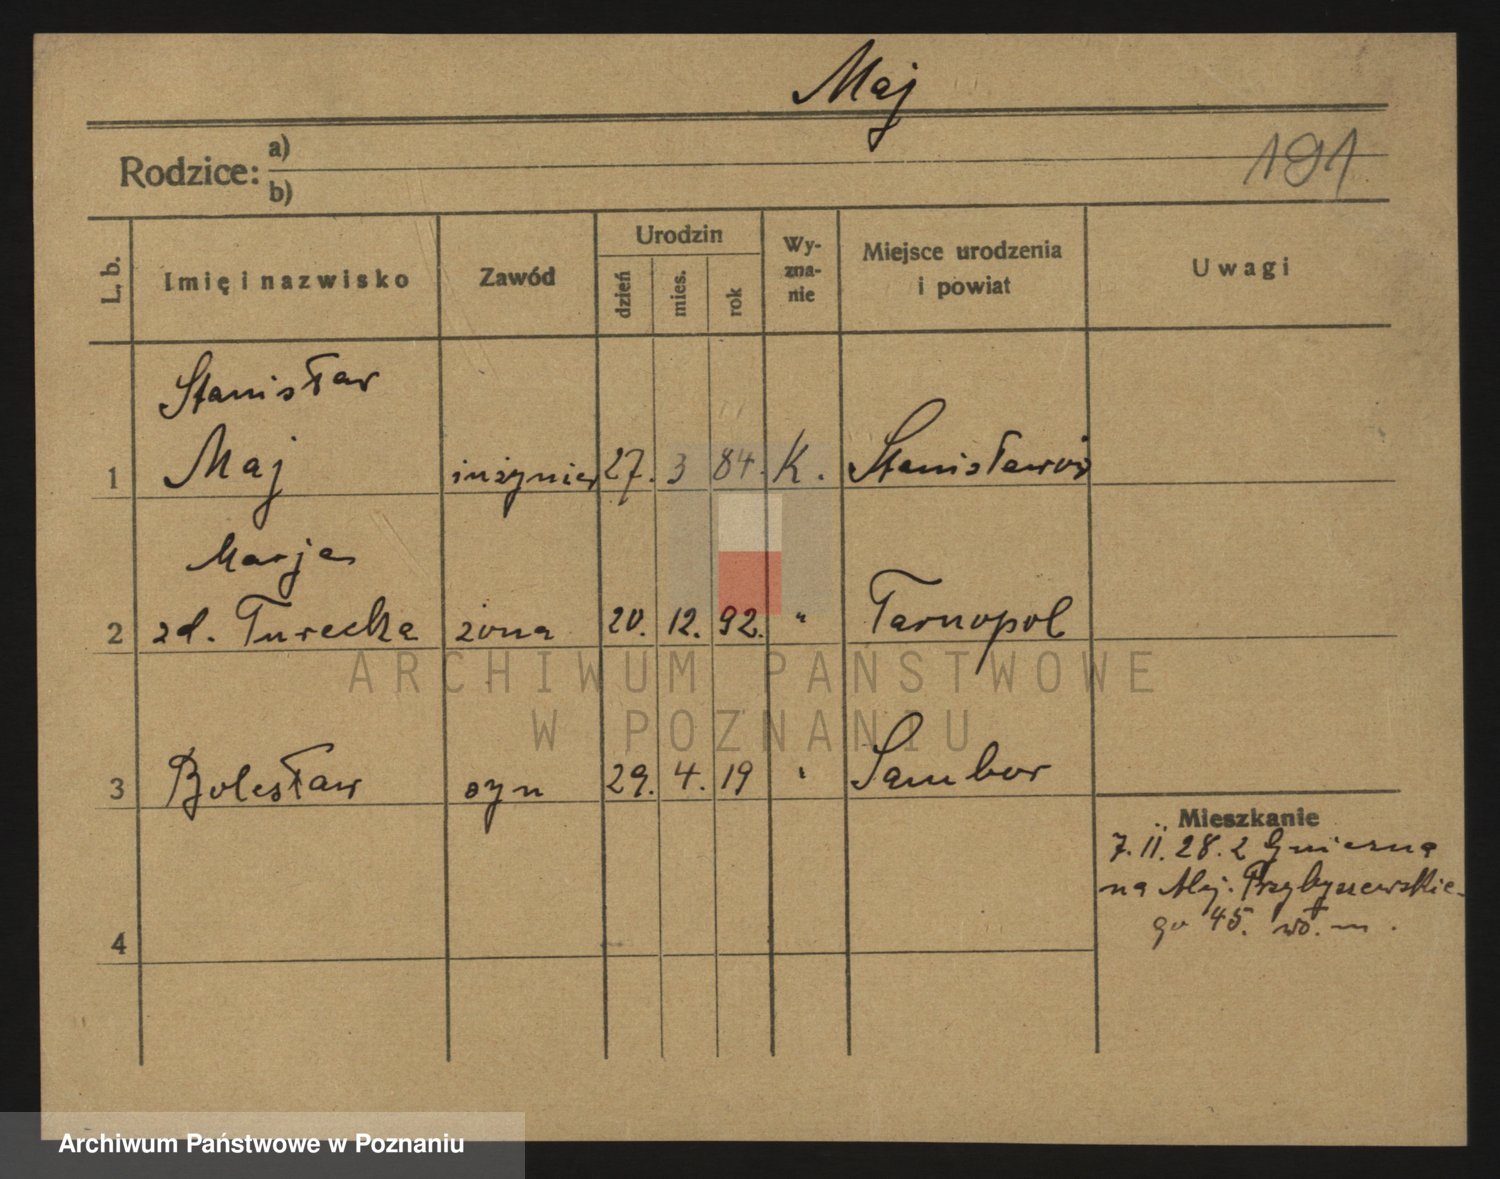 Maj
191
Rodzice: a)
b)
L. b. Imię i nazwisko Zawód Urodzin dzień mies. rok Wy-zna-nie Miejsce urodzenia i powiat Uwagi
Stanisław
1 Maj inżynier 27. 3 84. K. Stanisławów
Marja
2 zd. Turecka żona 20. 12. 92. " Tarnopol
3 Bolesław syn 29. 4. 19 " Sambor
Mieszkanie
7. II. 28. z Gniezna
na Alej. Przybyszewskie-
go 45. wł. m.
4
ARCHIWUM PAŃSTWOWE
W POZNANIU
Archiwum Państwowe w Poznaniu